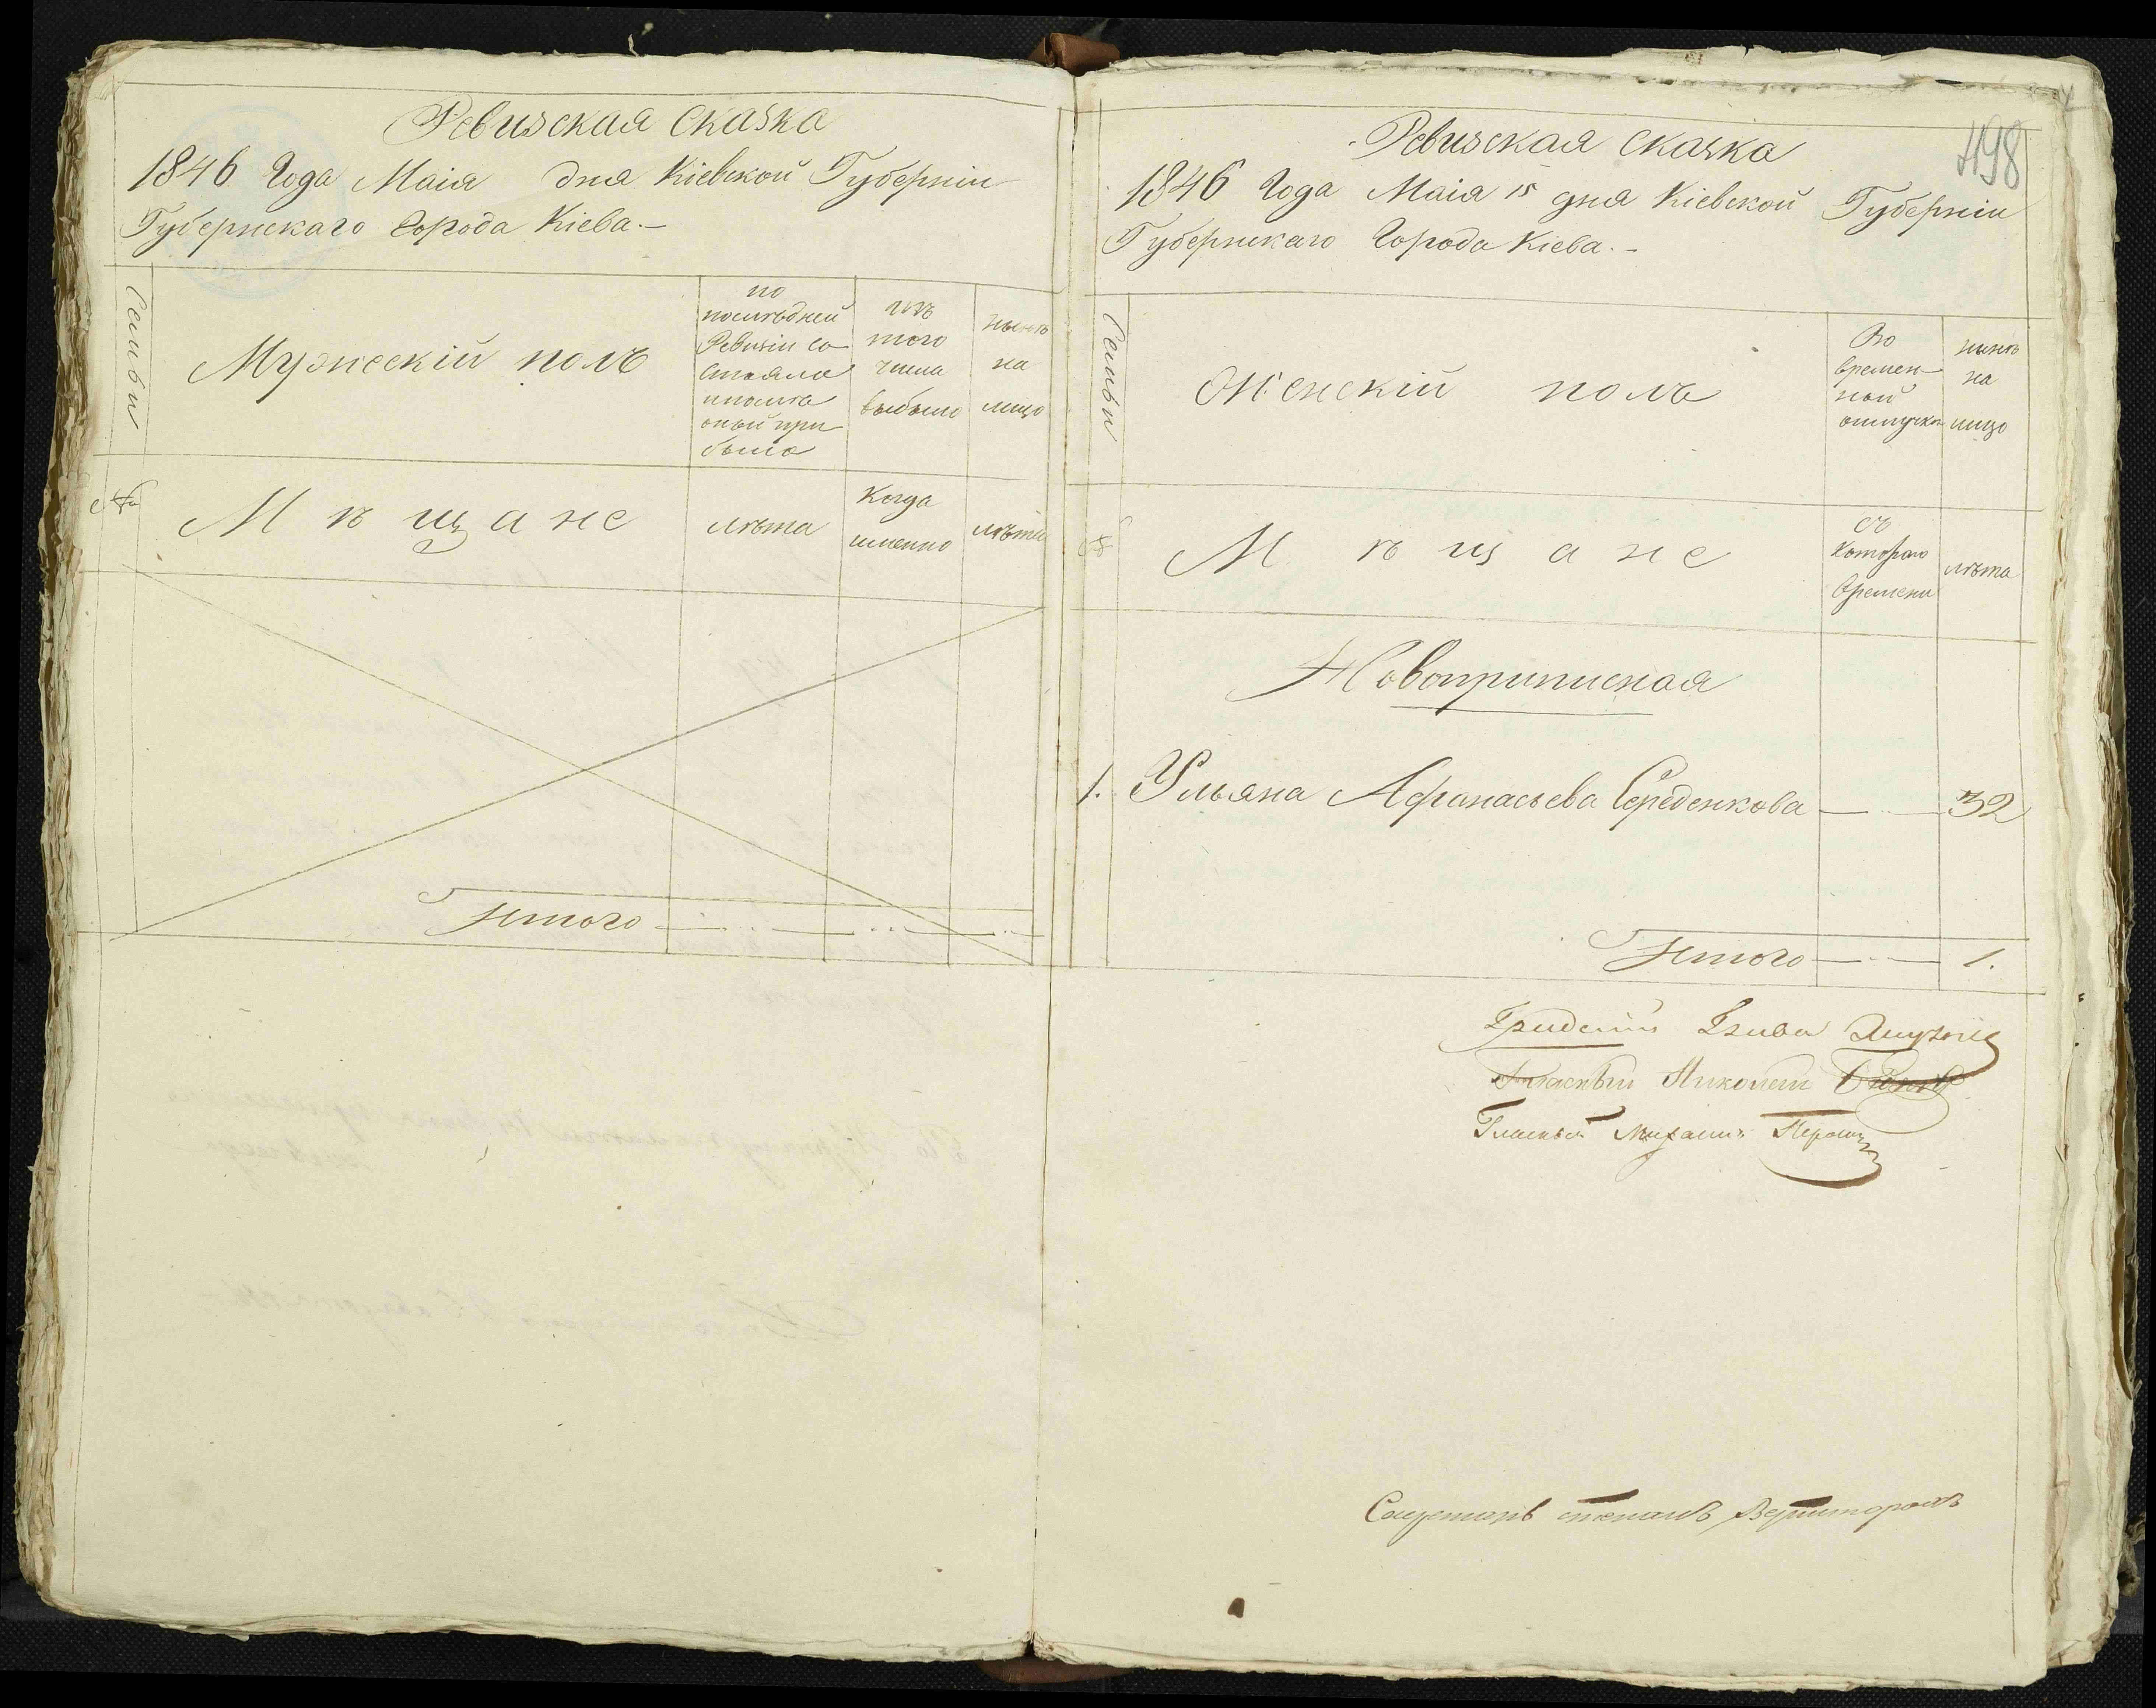 Ревизская сказка
1846 Года Маія дня Кіевской Губерніи
Губернскаго Города Кіева.—
Семьи
Мужескій полъ
по
послѣдней
Ревизіи со
стояло
и послѣ
оной при
было
изъ
того
числа
выбыло
нынѣ
на
лицо
№
Мѣщане
лѣта
Когда
именно
лѣта
Итого
498
Ревизская сказка
1846 Года Маія 15 дня Кіевской Губерніи
Губернскаго Города Кіева.—
Семьи
Женскій полъ
Во
времен-
ной
отлучкѣ
нынѣ
на
лицо
№
Мѣщане
съ
Котораго
Времени
лѣта
Новоприписная
1. Ульяна Афанасьева Середенкова — 32
Итого — 1.
Гласный Николай
Гласный Михаилъ